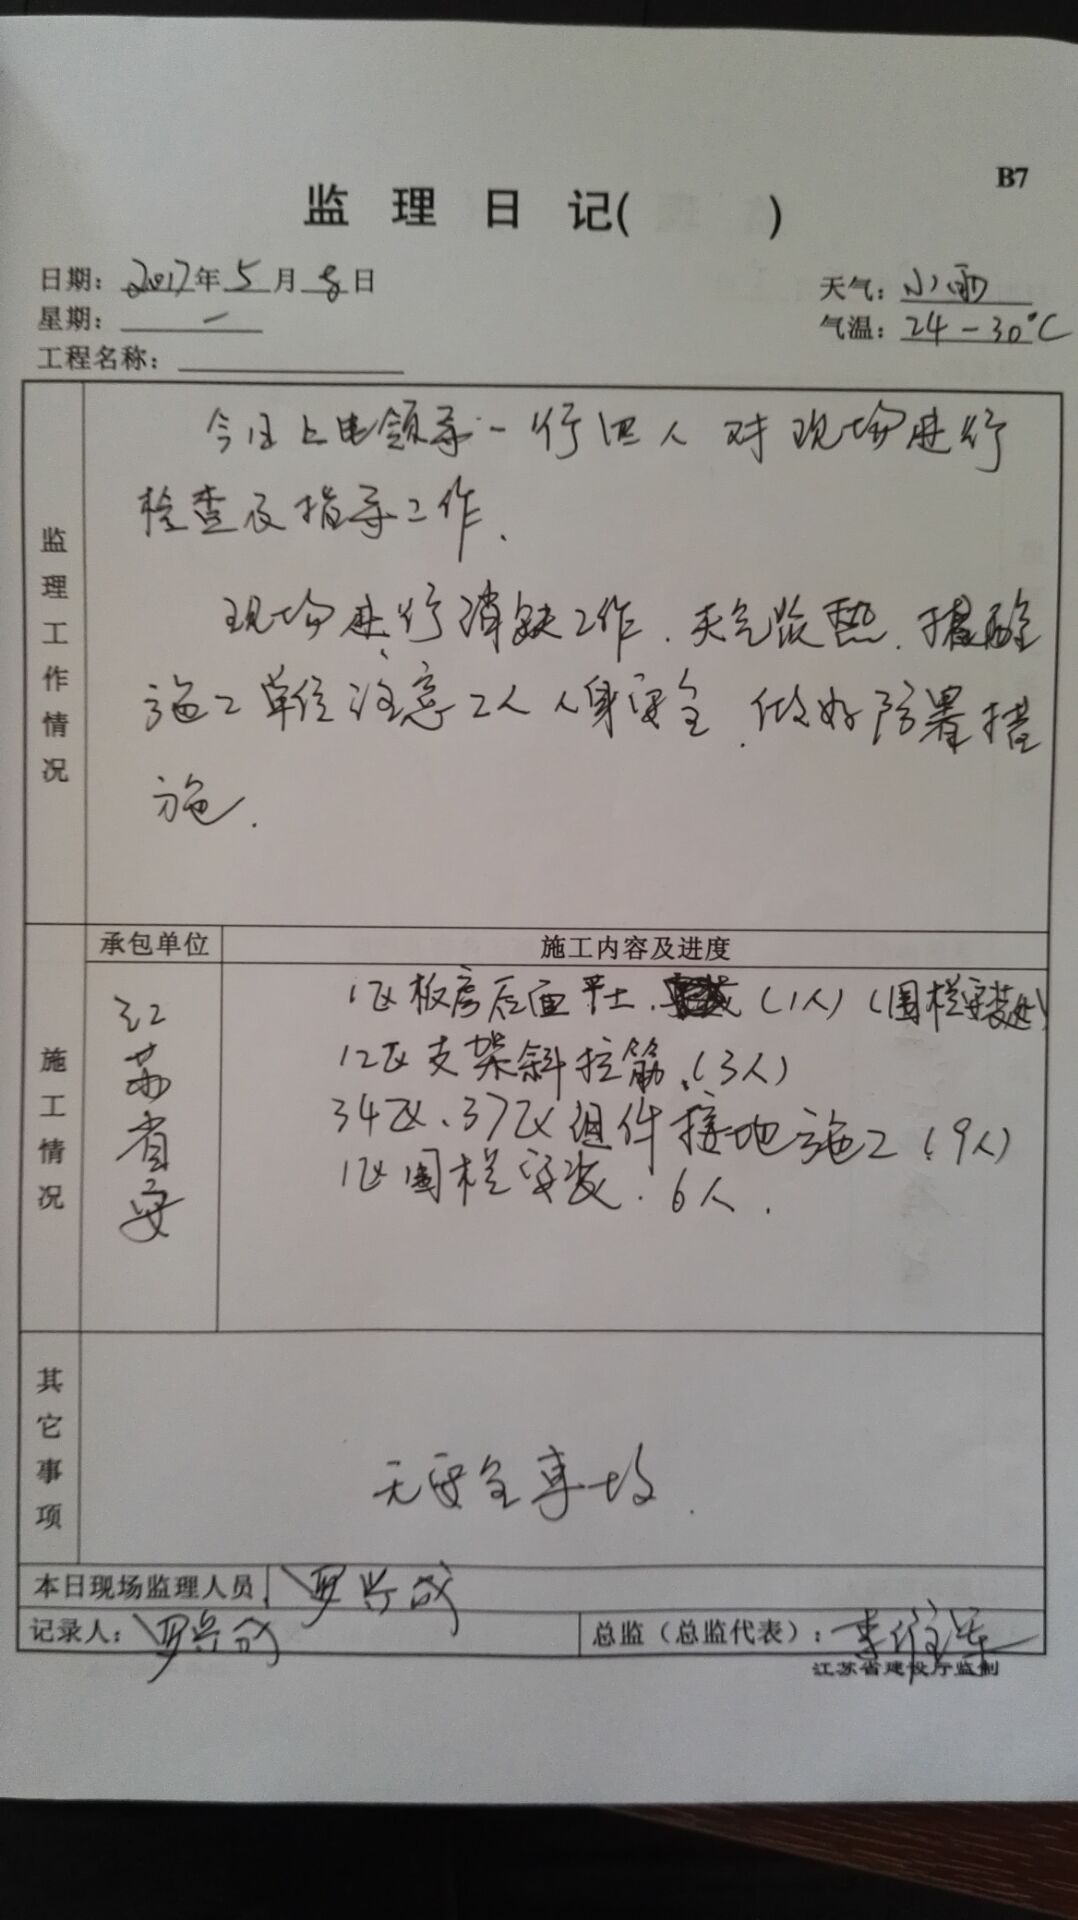 B7
监 理 日 记( )
日期: 2017年5月8日
天气: 小雨
星期: 一
气温: 24-30°C
工程名称:
监理工作情况
今日上电领导一行四人对现场进行
检查及指导工作.
现场进行消缺工作.天气炎热.提醒
施工单位注意工人人身安全.做好防署措
施.
承包单位
施工内容及进度
施工情况
江苏省安
1区板房后面平土.(1人)(围栏安装处)
12区支架斜拉筋.(3人)
34区、37区组件接地施工(9人)
1区围栏安装.6人.
其它事项
无安全事故.
本日现场监理人员 罗兴成
记录人: 罗兴成
总监(总监代表): 李
江苏省建设厅监制